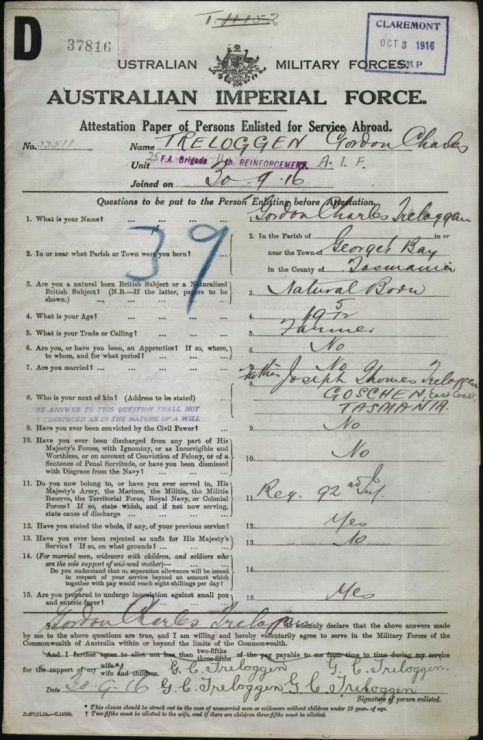 D
37816
CLAREMONT
OCT 3 1916
USTRALIAN MILITARY FORCES.
AUSTRALIAN IMPERIAL FORCE.
Attestation Paper of Persons Enlisted for Service Abroad.
No. Name TRELOGGEN Gordon Charles
Unit 25 F.A. Brigade REINFORCEMENT A.I.F.
Joined on 30-9-16
Questions to be put to the Person Enlisting before Attestation.
39
1. What is your Name? 1. Gordon Charles Treloggen
2. In or near what Parish or Town were you born? 2. In the Parish of in or
near the Town of George's Bay
in the County of Tasmania
3. Are you a natural born British Subject or a Naturalised
British Subject? (N.B.—If the latter, papers to be
shown.) 3. Natural Born
4. What is your Age? 4. 19 5/12
5. What is your Trade or Calling? 5. Farmer
6. Are you, or have you been, an Apprentice? If so, where,
to whom, and for what period? 6. No
7. Are you married? 7. No
8. Who is your next of kin? (Address to be stated) 8. Father Joseph Thomas Treloggen
GOSCHEN, East Coast
TASMANIA.
ANSWER TO THIS QUESTION SHALL NOT
CONSTRUED AS IN THE NATURE OF A WILL
9. Have you ever been convicted by the Civil Power? 9. No
10. Have you ever been discharged from any part of His
Majesty's Forces, with Ignominy, or as Incorrigible and
Worthless, or on account of Conviction of Felony, or of a
Sentence of Penal Servitude, or have you been dismissed
with Disgrace from the Navy? 10. No
11. Do you now belong to, or have you ever served in, His
Majesty's Army, the Marines, the Militia, the Militia
Reserve, the Territorial Force, Royal Navy, or Colonial
Forces? If so, state which, and if not now serving,
state cause of discharge 11. 92nd Inf.
12. Have you stated the whole, if any, of your previous service? 12. Yes
13. Have you ever been rejected as unfit for His Majesty's
Service? If so, on what grounds? 13. No
14. (For married men, widowers with children, and soldiers who
are the sole support of widowed mother)—
Do you understand that no separation allowance will be issued
in respect of your service beyond an amount which
together with pay would reach eight shillings per day? 14.
15. Are you prepared to undergo inoculation against small pox
and enteric fever? 15. Yes
I, Gordon Charles Treloggen do solemnly declare that the above answers made
by me to the above questions are true, and I am willing and hereby voluntarily agree to serve in the Military Forces of the
Commonwealth of Australia within or beyond the limits of the Commonwealth.
And I further agree to allot not less than two-fifths three-fifths of the pay payable to me from time to time during my service
for the support of my wife wife and children. G. C. Treloggen G. C. Treloggen.
Date 30-9-16 G. C. Treloggen G. C. Treloggen
Signature of person enlisted.
* This clause should be struck out in the case of unmarried men or widowers without children under 18 years of age.
† Two-fifths must be allotted to the wife, and if there are children three-fifths must be allotted.